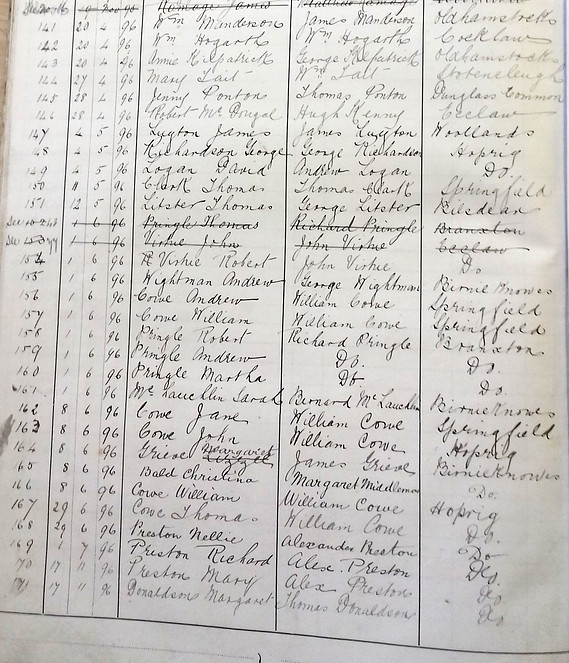 141 20 4 96 Wm Manderson James Manderson Oldhamstocks
142 20 4 96 Wm Hogarth Wm Hogarth Cocklaw
143 20 4 96 Annie Kilpatrick George Kilpatrick Oldhamstocks
144 27 4 96 Mary Tait Wm Tait Stoneleugh
145 28 4 96 Jenny Ponton Thomas Ponton Dunglass Common
146 28 4 96 Robert McDougal Hugh Kenny Ecclaw
147 4 5 96 Luyton James James Luyton Woollands
148 4 5 96 Richardson George George Richardson Hoprig
149 4 5 96 Logan David Andrew Logan Do.
150 11 5 96 Clark Thomas Thomas Clark Springfield
151 12 5 96 Litster Thomas George Litster Bilsdean
1 6 96 Pringle Thomas Richard Pringle Branxton
1 6 96 Virtue John John Virtue Ecclaw
154 1 6 96 Virtue Robert John Virtue Do
155 1 6 96 Wightman Andrew George Wightman Birnie Knowes
156 1 6 96 Cowe Andrew William Cowe Springfield
157 1 6 96 Cowe William William Cowe Springfield
158 1 6 96 Pringle Robert Richard Pringle Branxton
159 1 6 96 Pringle Andrew Do. Do.
160 1 6 96 Pringle Martha Do Do.
161 1 6 96 McLauchlin Sarah Bernard McLauchlin Birnieknowes
162 8 6 96 Cowe Jane William Cowe Springfield
163 8 6 96 Cowe John William Cowe Hoprig
164 8 6 96 Grieve Margaret Lizzie James Grieve Birnieknowes
65 8 6 96 Bald Christina Margaret Middlemas Do.
166 8 6 96 Cowe William William Cowe Hoprig
167 29 6 96 Cowe Thomas William Cowe Do.
168 29 6 96 Preston Nellie Alexander Preston Do
169 1 7 96 Preston Richard Alex. Preston Do.
170 17 11 96 Preston Mary Alex Preston Do
171 17 11 96 Donaldson Margaret Thomas Donaldson Do